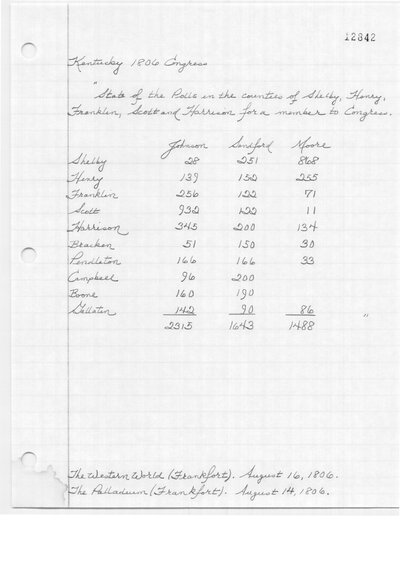 12842
Kentucky 1806 Congress
"State of the Polls in the counties of Shelby, Henry,
Franklin, Scott and Harrison for a member to Congress.
Johnson Sandford Moore
Shelby 28 251 868
Henry 139 152 255
Franklin 256 122 71
Scott 932 122 11
Harrison 345 200 134
Bracken 51 150 30
Pendleton 166 166 33
Campbell 96 200
Boone 160 190
Gallatin 142 90 86 "
2315 1643 1488
The Western World (Frankfort). August 16, 1806.
The Palladium (Frankfort). August 14, 1806.